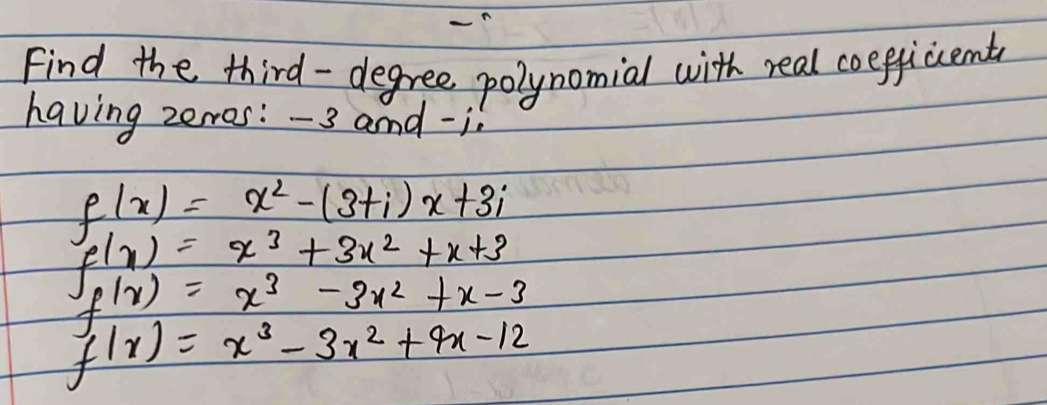 -i
Find the third-degree polynomial with real coefficients
having zeros: -3 and -i.
f(x) = x² -(3+i)x+3i
f(x) = x³ +3x² +x+3
f(x) = x³ -3x² +x-3
f(x) = x³ - 3x² + 9x-12